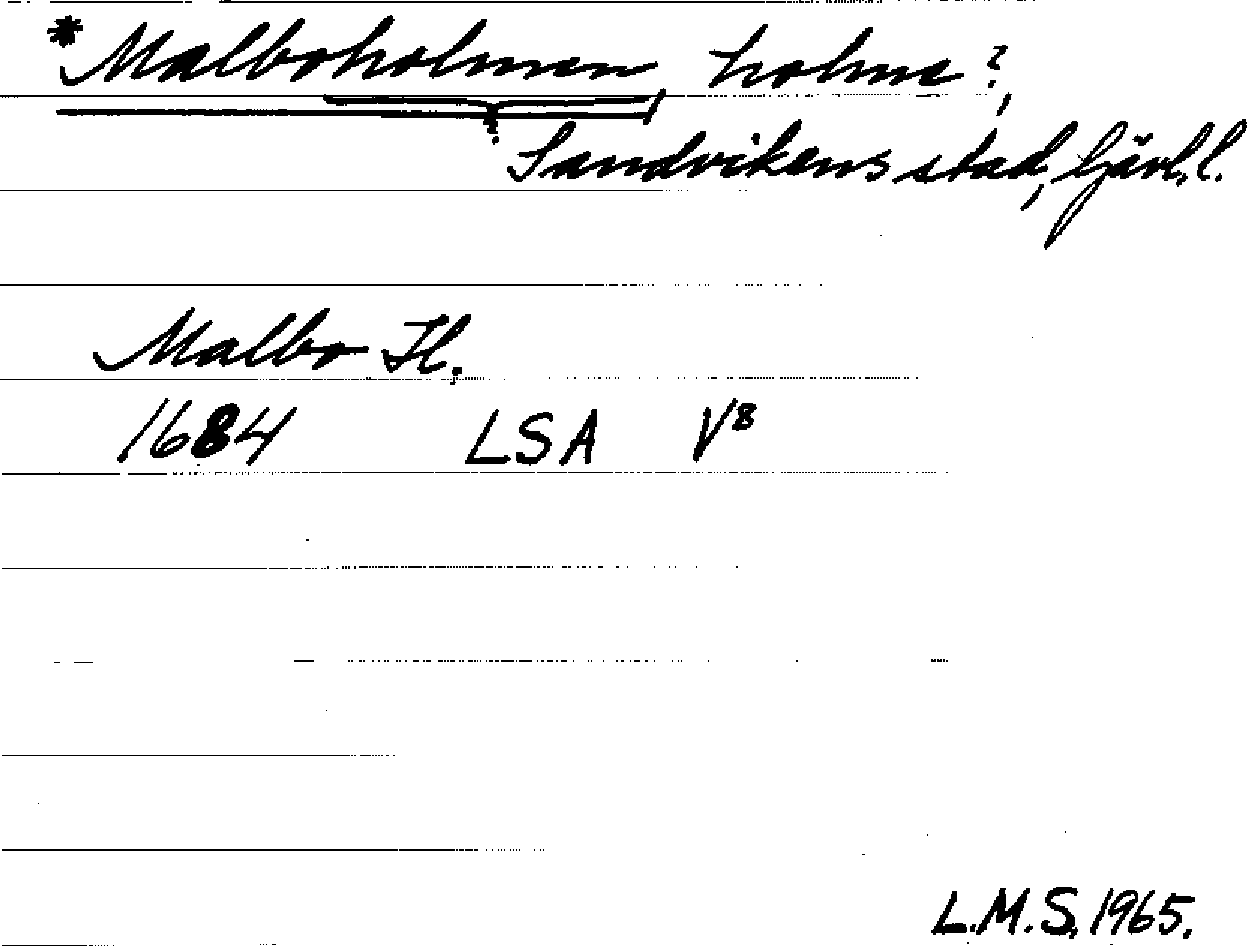 *Malboholmen, holme?,
?
Sandvikens stad, Gävl.l.
Malbo H.
1684 LSA V8
L.M.S. 1965.